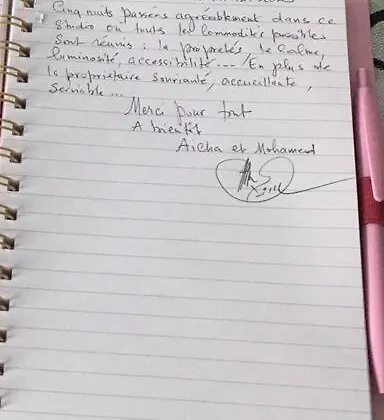 Cinq nuits passées agréablement dans ce
studio où touts les commodités possibles
sont réunis : la propretés, le calme,
luminosité, accessibilité... / En plus de
la propriétaire souriante, accueillante,
serviable...
Merci pour tout
A bientôt
Aicha et Mohamed